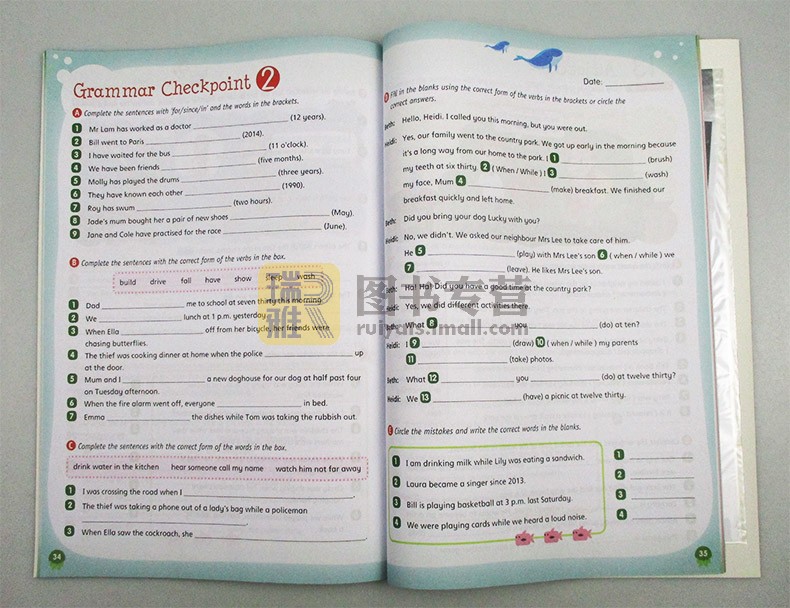 Grammar Checkpoint 2
A Complete the sentences with 'for/since/in' and the words in the brackets.
1 Mr Lam has worked as a doctor ____________ (12 years).
2 Bill went to Paris ____________ (2014).
3 I have waited for the bus ____________ (11 o'clock).
4 We have been friends ____________ (five months).
5 Molly has played the drums ____________ (three years).
6 They have known each other ____________ (1990).
7 Roy has swum ____________ (two hours).
8 Jade's mum bought her a pair of new shoes ____________ (May).
9 Jane and Cole have practised for the race ____________ (June).
B Complete the sentences with the correct form of the verbs in the box.
build drive fall have show sleep wash
1 Dad ____________ me to school at seven thirty this morning.
2 We ____________ lunch at 1 p.m. yesterday.
3 When Ella ____________ off from her bicycle, her friends were
chasing butterflies.
4 The thief was cooking dinner at home when the police ____________ up
at the door.
5 Mum and I ____________ a new doghouse for our dog at half past four
on Tuesday afternoon.
6 When the fire alarm went off, everyone ____________ in bed.
7 Emma ____________ the dishes while Tom was taking the rubbish out.
C Complete the sentences with the correct form of the words in the box.
drink water in the kitchen hear someone call my name watch him not far away
1 I was crossing the road when I ____________.
2 The thief was taking a phone out of a lady's bag while a policeman
____________.
3 When Ella saw the cockroach, she ____________.
34
Date: ____________
D Fill in the blanks using the correct form of the verbs in the brackets or circle the
correct answers.
Beth: Hello, Heidi. I called you this morning, but you were out.
Heidi: Yes, our family went to the country park. We got up early in the morning because
it's a long way from our home to the park. I 1 ____________ (brush)
my teeth at six thirty. 2 ( When / While ) I 3 ____________ (wash)
my face, Mum 4 ____________ (make) breakfast. We finished our
breakfast quickly and left home.
Beth: Did you bring your dog Lucky with you?
Heidi: No, we didn't. We asked our neighbour Mrs Lee to take care of him.
He 5 ____________ (play) with Mrs Lee's son 6 ( when / while ) we
7 ____________ (leave). He likes Mrs Lee's son.
Beth: Ha! Ha! Did you have a good time at the country park?
Heidi: Yes, we did different activities there.
Beth: What 8 ____________ you ____________ (do) at ten?
Heidi: I 9 ____________ (draw) 10 ( when / while ) my parents
11 ____________ (take) photos.
Beth: What 12 ____________ you ____________ (do) at twelve thirty?
Heidi: We 13 ____________ (have) a picnic at twelve thirty.
E Circle the mistakes and write the correct words in the blanks.
1 I am drinking milk while Lily was eating a sandwich.
2 Laura became a singer since 2013.
3 Bill is playing basketball at 3 p.m. last Saturday.
4 We were playing cards while we heard a loud noise.
1 ____________
2 ____________
3 ____________
4 ____________
35
瑞雅 R 图书专营
ruiyats.tmall.com